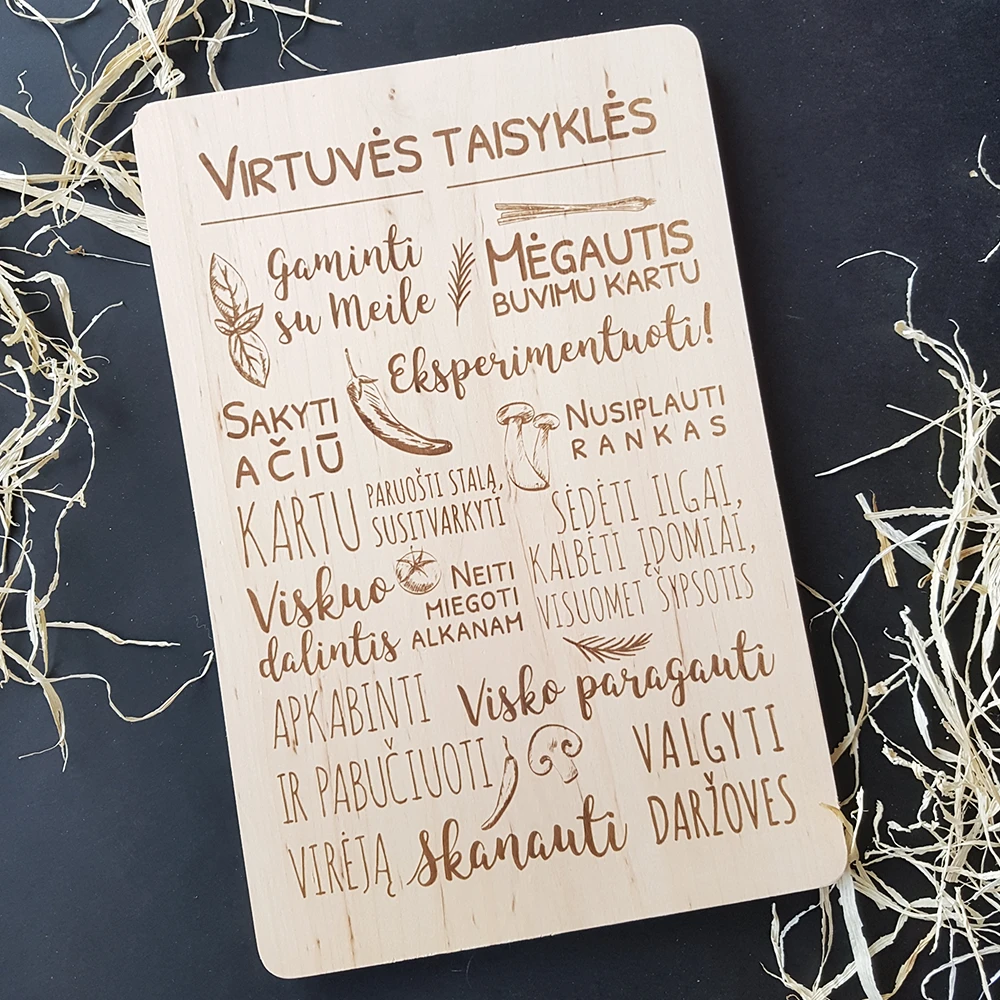 VIRTUVĖS TAISYKLĖS
Gaminti
su Meile
MĖGAUTIS
BUVIMU KARTU
Eksperimentuoti!
SAKYTI
AČIŪ
NUSIPLAUTI
RANKAS
KARTU
PARUOŠTI STALĄ,
SUSITVARKYTI
SĖDĖTI ILGAI,
KALBĖTI ĮDOMIAI,
VISUOMET ŠYPSOTIS
Viskuo
dalintis
NEITI
MIEGOTI
ALKANAM
APKABINTI
IR PABUČIUOTI
VIRĖJĄ
Visko paragauti
skanauti
VALGYTI
DARŽOVES